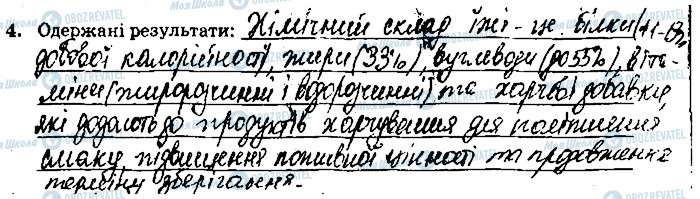 4. Одержані результати: Хімічний склад їжі - це білки (11-13%
добової калорійності), жири (33%), вуглеводи (до 55%), віта-
міни (жиророзчинні і водорозчинні) та харчові добавки,
які додають до продуктів харчування для поліпшення
смаку, підвищення поживної цінності та продовження
терміну зберігання.